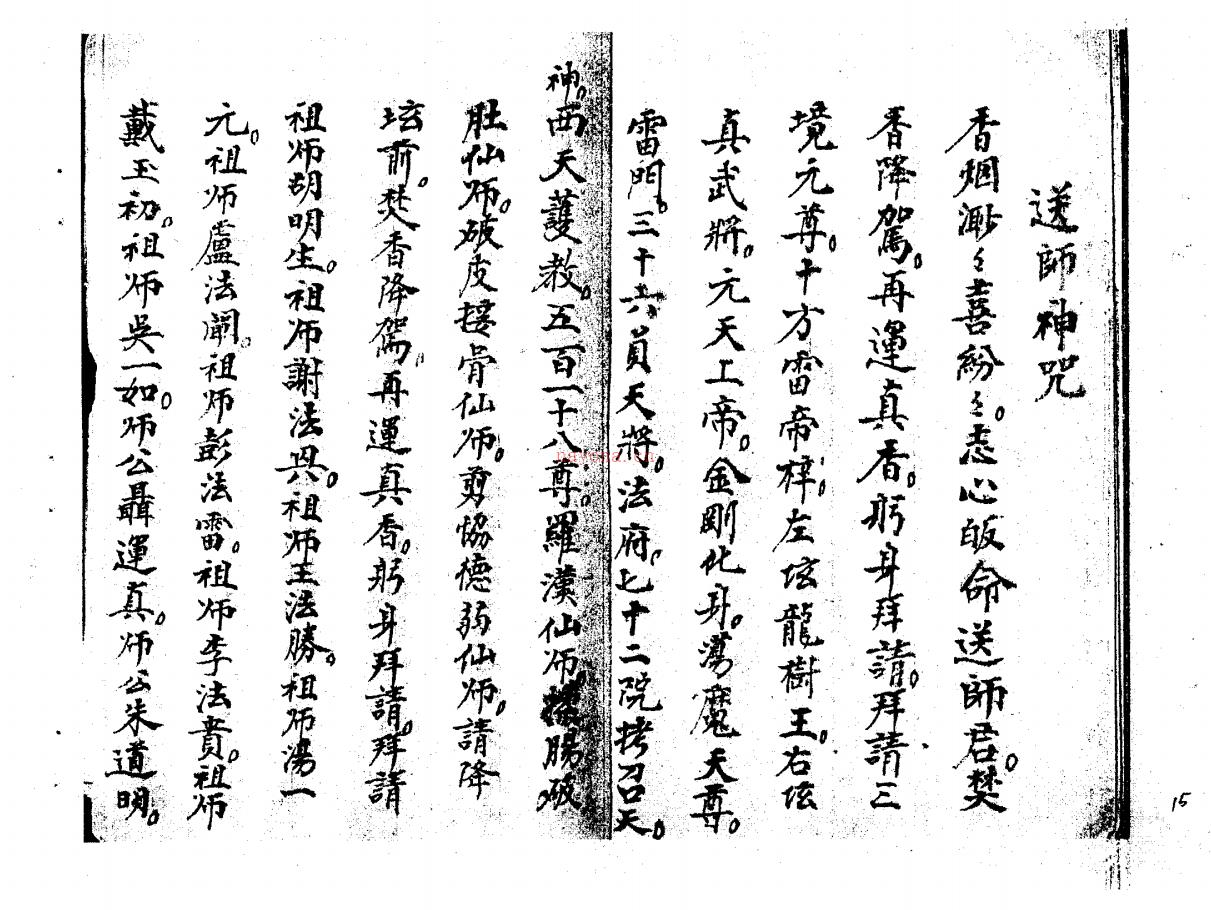 送師神咒
香烟渺々喜紛々。志心皈命送師君。焚
香降駕。再運真香。躬身拜請。拜請三
境元尊。十方雷帝樟。左垓龍樹王。右垓
真武將。元天上帝。金剛化身。蕩魔天尊。
雷門。三十六員天將。法府。七十二院拷召天。
神。西天護教。五百一十八尊。羅漢仙师。腸破
肚仙师。破皮接骨仙师。剪恊德弱仙师。請降
垓前。焚香降駕。再運真香。躬身拜請。拜請
祖师胡明生。祖师謝法興。祖师王法勝。祖师湯一
元。祖师盧法闡。祖师彭法雷。祖师李法貴。祖师
戴玉初。祖师吳一如。师公聶運真。师公朱道明。
15